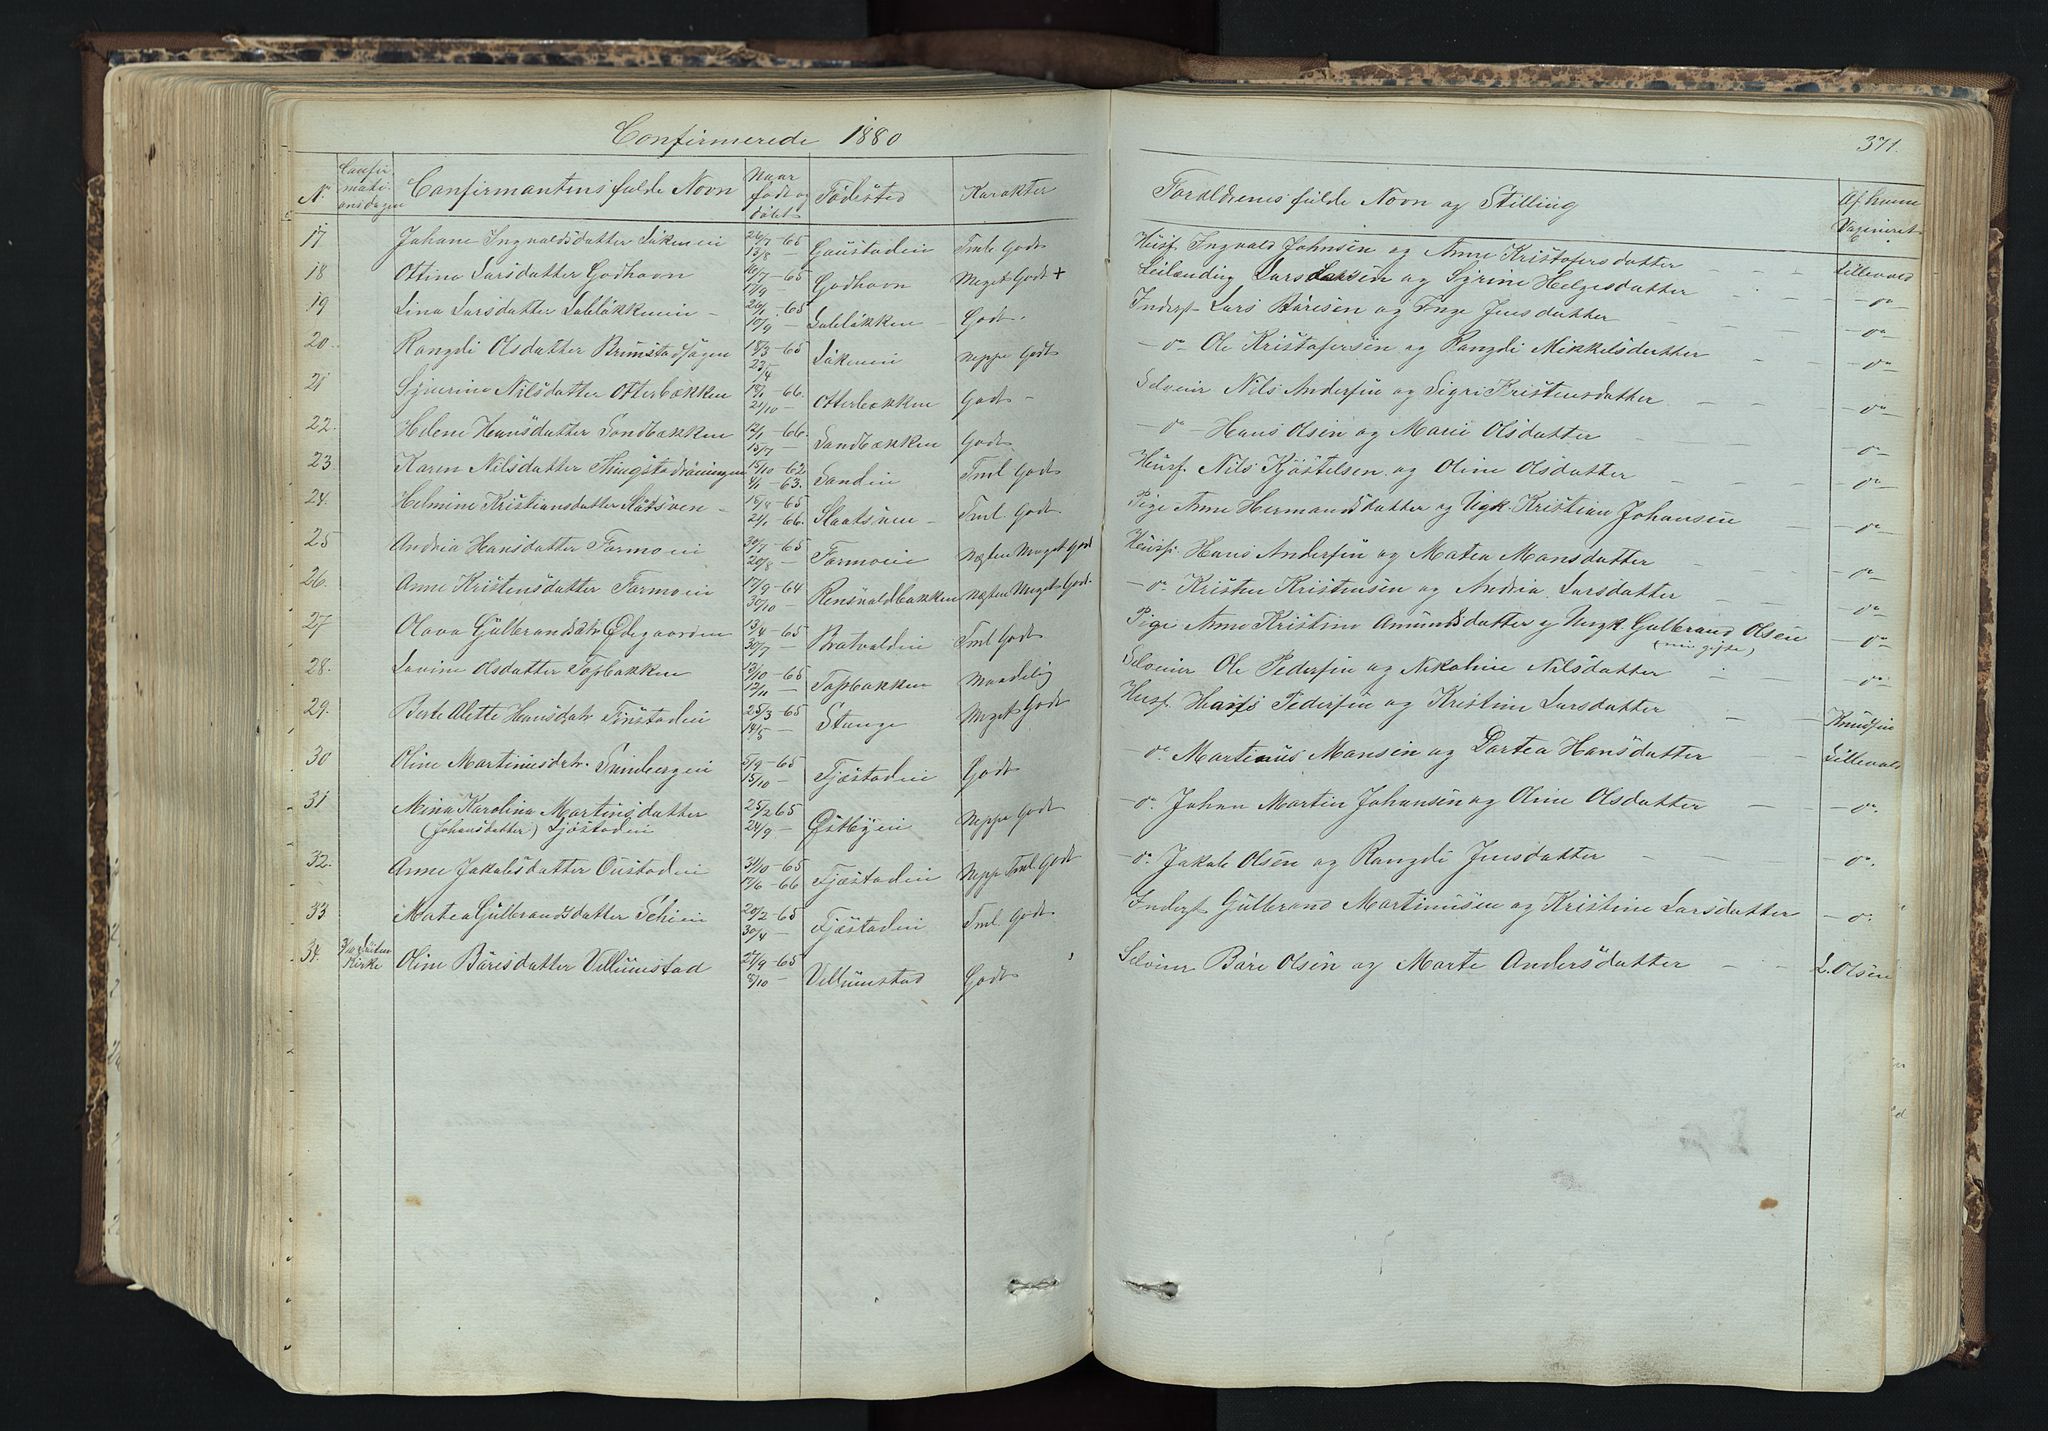 Confirmerede 1880
371.
No Confirmationsdagen Confirmantens fulde Navn Naar født og døbt Fødested Karakter Forældrenes fulde Navn og Stilling Af hvem Vaccineret
17 Johane Ingvaldsdatter Løkmen 26/7-65 13/8 — Gaustadien Tml Godt Husf. Ingvald Johnsen og Anne Kristofersdatter — Lillevold
18 Ottine Larsdatter Godhavn /7-65 /9 — Godhavn Meget Godt + Leilænding Lars Larsen og Syrine Helgesdatter — do
19 Lina Larsdatter — 65 10/9 — Godt Inderst Lars Båresen og Inge Jensdatter — do
20. Rangdi Olsdatter Brunstadhagen 18/3-65 23/4 Løkmen Neppe Godt — do Ole Kristofersen og Rangdi Mikkelsdatter do
21 Nilsdatter Otterbækken /1-66. 21/10 — Otterbækken Godt — Selveier Nils Andersen og Sigri Kristensdatter — do
22. Helene Hansdatter Sandbækken 12/1-66. 15/7 — Sandbækken Godt — do — Hans Olsen og Marie Olsdatter — do
23 Karen Nilsdatter 13/10-62 4/1-63. Sandin Tml Godt Husf. Nils Kjøstelsen og Oline Olsdatter — do
24. Helmine Kristiansdatter Slåtsven — 18/8-65 21/1-66. Slaatsven — Tml. Godt. Pige Anne Hermansdatter og Ugk. Kristian Johansen — do
25 Andria Hansdatter Formoen 30/7-65 20/8 — Formoen Næsten Meget Godt Husf. Hans Andersen og Matea Mansdatter — do
26. Anne Kristensdatter Formoen 17/9-64 30/10 — Rensvoldbakken Næsten Meget Godt. — do. Kristen Kristensen og Andria Larsdatter — do
27 Olava Gulbrandsdtr Ødegaarden 13/4-65 30/7 — Bratvoldin Tml Godt Pige Anne Kristine Amundsdatter og Ungk. Gulbrand Olsen — do
(nu gifte)
28. Lovine Olsdatter Topbakken 13/10-65 12/11 — Topbakken Maadelig Selveier Ole Pedersen og Nikoline Nilsdatter — do
29. Berte Alette Hansdatr 25/3-65 14/5 — Stange Meget Godt Husf. Hans Pedersen og Kristine Larsdatter — Knudsen
30 Oline Martinusdatr. 5/9-65 15/10 — Fjæstadien Godt — do. Martinus Mansen og Dortea Hansdatter Lillevold
31 Mina Karolina Martinsdatter 25/2 65 24/9 — Østbyen Neppe Godt — do. Johan Martin Johansen og Oline Olsdatter — do.
(Johansdatter)
32. Anne Jakobsdatter Oustadien 31/10-65 17/6-66 Fjæstadien Neppe Tml. Godt — do Jakob Olsen og Rangdi Jensdatter — do.
33 Matea Gulbrandsdatter 20/2-65 30/4 — Fjæstadien Tml. Godt Inderst Gulbrand Martinusen og Kristine Larsdatter — do.
34. Kirke Oline Båresdatter Villumstad /9-65 /10 — Villumstad Godt Selveier Båre Olsen og Marte Andersdatter — L. Olsen